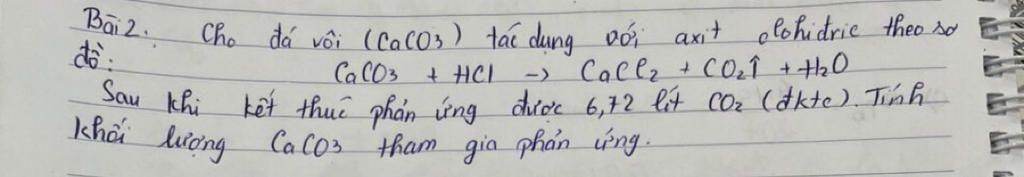 Bài 2: Cho đá vôi (CaCO3) tác dụng với axit clohidric theo sơ
đồ:
CaCO3 + HCl → CaCl2 + CO2↑ + H2O
Sau khi kết thúc phản ứng được 6,72 lít CO2 (đktc). Tính
khối lượng CaCO3 tham gia phản ứng.